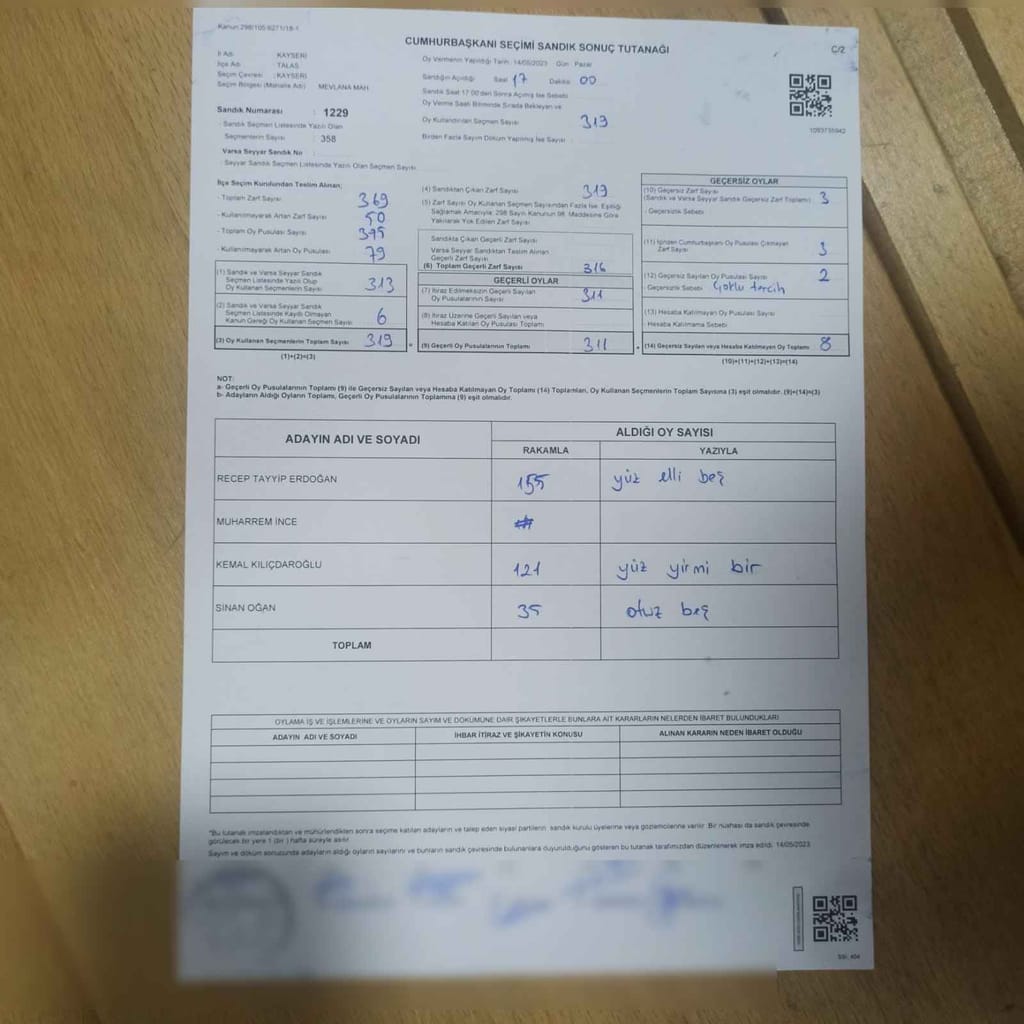 Kanun 298/105-6271/18-1
CUMHURBAŞKANI SEÇİMİ SANDIK SONUÇ TUTANAĞI
C/2
İl Adı : KAYSERİ
İlçe Adı : TALAS
Seçim Çevresi : KAYSERİ
Seçim Bölgesi (Mahalle Adı) MEVLANA MAH
Sandık Numarası : 1229
- Sandık Seçmen Listesinde Yazılı Olan
Seçmenlerin Sayısı : 358
Varsa Seyyar Sandık No :
- Seyyar Sandık Seçmen Listesinde Yazılı Olan Seçmen Sayısı
Oy Vermenin Yapıldığı Tarih : 14/05/2023 Gün : Pazar
Sandığın Açıldığı Saat 17 Dakika 00
Sandık Saat 17.00'den Sonra Açılmış İse Sebebi
Oy Verme Saati Bitiminde Sırada Bekleyen ve
Oy Kullandırılan Seçmen Sayısı 319
Birden Fazla Sayım Döküm Yapılmış İse Sayısı :
1093735942
İlçe Seçim Kurulundan Teslim Alınan;
- Toplam Zarf Sayısı 369
- Kullanılmayarak Artan Zarf Sayısı 50
- Toplam Oy Pusulası Sayısı 395
- Kullanılmayarak Artan Oy Pusulası 79
(1) Sandık ve Varsa Seyyar Sandık
Seçmen Listesinde Yazılı Olup
Oy Kullanan Seçmenlerin Sayısı 313
(2) Sandık ve Varsa Seyyar Sandık
Seçmen Listesinde Kaydı Olmayan
Kanun Gereği Oy Kullanan Seçmen Sayısı 6
(3) Oy Kullanan Seçmenlerin Toplam Sayısı 319
(1)+(2)=(3)
(4) Sandıktan Çıkan Zarf Sayısı 319
(5) Zarf Sayısı Oy Kullanan Seçmen Sayısından Fazla İse, Eşitliği
Sağlamak Amacıyla; 298 Sayılı Kanunun 98. Maddesine Göre
Yakılarak Yok Edilen Zarf Sayısı
Sandıkta Çıkan Geçerli Zarf Sayısı
Varsa Seyyar Sandıktan Teslim Alınan
Geçerli Zarf Sayısı
(6) Toplam Geçerli Zarf Sayısı 316
GEÇERLİ OYLAR
(7) İtiraz Edilmeksizin Geçerli Sayılan
Oy Pusulalarının Sayısı 311
(8) İtiraz Üzerine Geçerli Sayılan veya
Hesaba Katılan Oy Pusulası Toplamı
= (9) Geçerli Oy Pusulalarının Toplamı 311
GEÇERSİZ OYLAR
(10) Geçersiz Zarf Sayısı
(Sandık ve Varsa Seyyar Sandık Geçersiz Zarf Toplamı) 3
- Geçersizlik Sebebi
(11) İçinden Cumhurbaşkanı Oy Pusulası Çıkmayan
Zarf Sayısı 3
(12) Geçersiz Sayılan Oy Pusulası Sayısı 2
- Geçersizlik Sebebi Çoklu tercih
(13) Hesaba Katılmayan Oy Pusulası Sayısı
- Hesaba Katılmama Sebebi
+ (14) Geçersiz Sayılan veya Hesaba Katılmayan Oy Toplamı 8
(10)+(11)+(12)+(13)=(14)
NOT:
a- Geçerli Oy Pusulalarının Toplamı (9) ile Geçersiz Sayılan veya Hesaba Katılmayan Oy Toplamı (14) Toplamları, Oy Kullanan Seçmenlerin Toplam Sayısına (3) eşit olmalıdır. (9)+(14)=(3)
b- Adayların Aldığı Oyların Toplamı, Geçerli Oy Pusulalarının Toplamına (9) eşit olmalıdır.
ADAYIN ADI VE SOYADI
ALDIĞI OY SAYISI
RAKAMLA YAZIYLA
RECEP TAYYİP ERDOĞAN 155 yüz elli beş
MUHARREM İNCE
KEMAL KILIÇDAROĞLU 121 yüz yirmi bir
SİNAN OĞAN 35 otuz beş
TOPLAM
OYLAMA İŞ VE İŞLEMLERİNE VE OYLARIN SAYIM VE DÖKÜMÜNE DAİR ŞİKAYETLERLE BUNLARA AİT KARARLARIN NELERDEN İBARET BULUNDUKLARI
ADAYIN ADI VE SOYADI İHBAR İTİRAZ VE ŞİKAYETİN KONUSU ALINAN KARARIN NEDEN İBARET OLDUĞU
*Bu tutanak imzalandıktan ve mühürlendikten sonra seçime katılan adayların ve talep eden siyasi partilerin sandık kurulu üyelerine veya gözlemcilerine verilir. Bir nüshası da sandık çevresinde
görülecek bir yere 1 (bir ) hafta süreyle asılır.
Sayım ve döküm sonucunda adayların aldığı oyların sayılarını ve bunların sandık çevresinde bulunanlara duyurulduğunu gösteren bu tutanak tarafımızdan düzenlenerek imza edildi. 14/05/2023